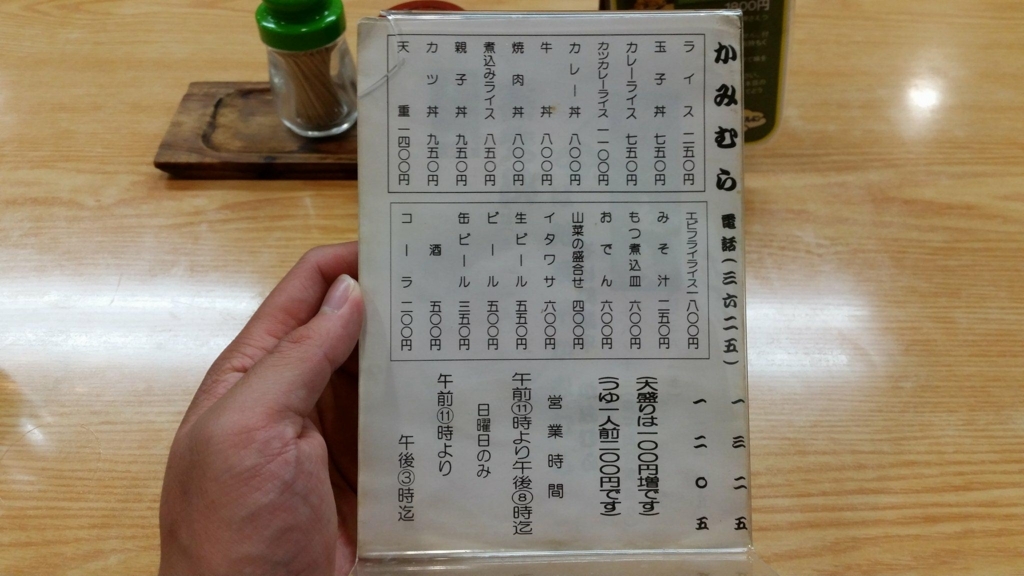 かみむら 電話(三六二五)一三二五
一二〇五
ライス 二五〇円
玉子丼 七五〇円
カレーライス 七五〇円
カツカレーライス 一一〇〇円
カレー丼 八〇〇円
牛丼 八〇〇円
焼肉丼 八〇〇円
煮込みライス 八五〇円
親子丼 九五〇円
カツ丼 九五〇円
天重 一四〇〇円
エビフライライス 一八〇〇円
みそ汁 二五〇円
もつ煮込皿 六〇〇円
おでん 六〇〇円
山菜の盛合せ 四〇〇円
イタワサ 六〇〇円
生ビール 五五〇円
ビール 五〇〇円
缶ビール 三五〇円
酒 五〇〇円
コーラ 二〇〇円
(大盛りは一〇〇円増です)
(つゆ一人前二〇〇円です)
営業時間
午前⑪時より午後⑧時迄
日曜日のみ
午前⑪時より
午後③時迄
1800円